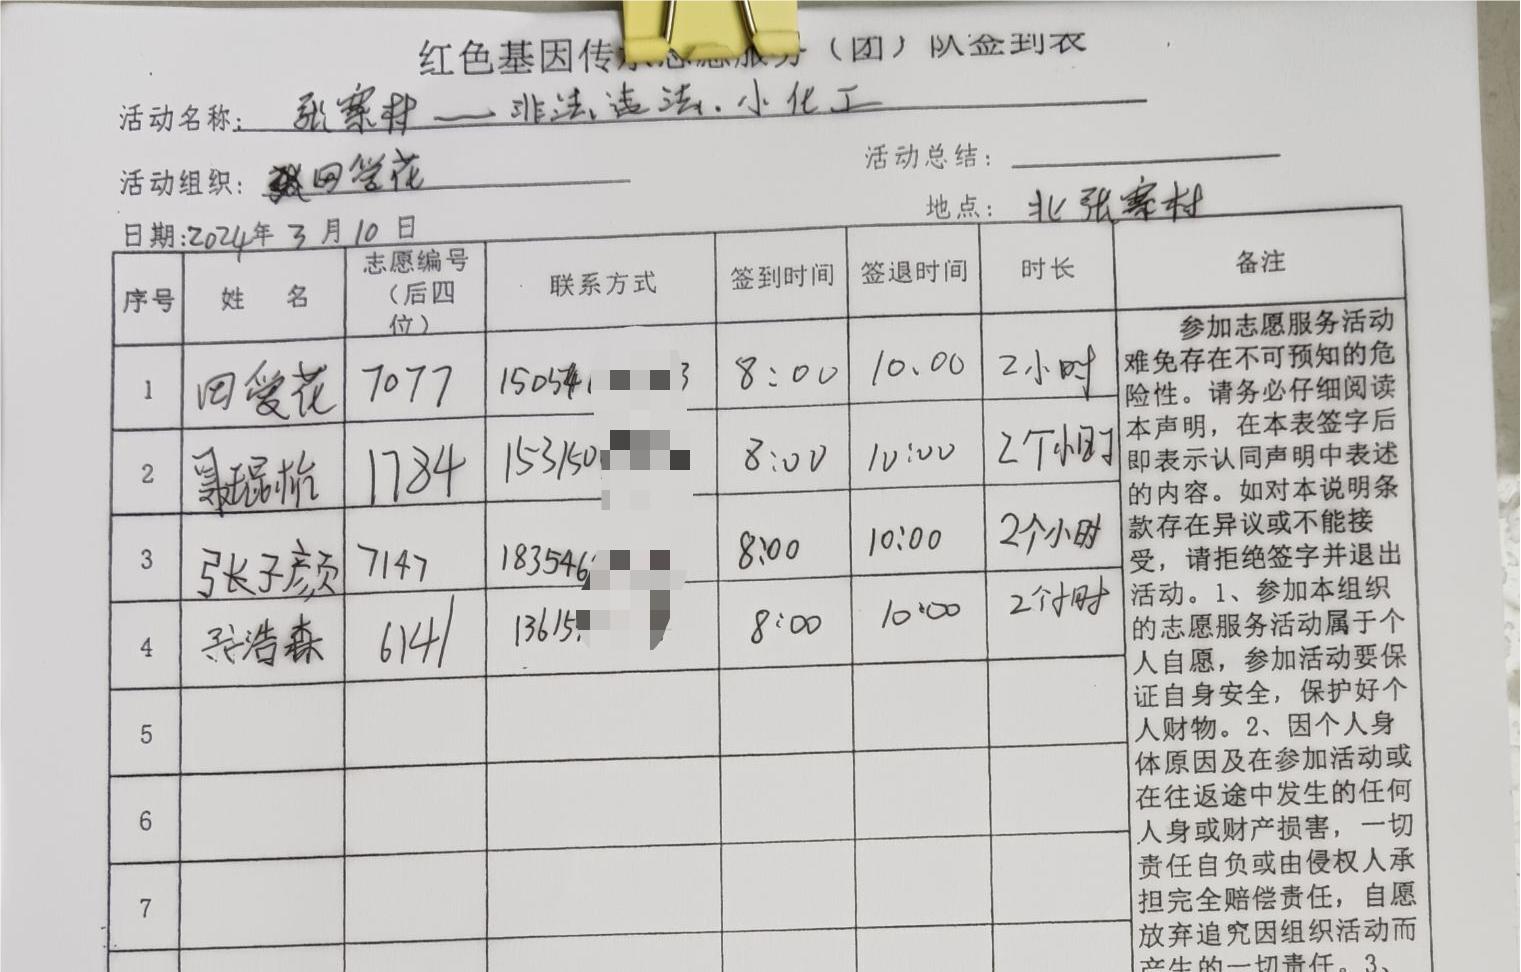 红色基因传承志愿服务（团）队签到表
活动名称：张寨村——非法、违法、小化工
活动组织：田爱花
活动总结：
日期:2024年3月10日
地点：北张寨村
序号 姓 名 志愿编号（后四位） 联系方式 签到时间 签退时间 时长 备注
1 田爱花 7077 15054 3 8:00 10:00 2小时
2 聂琨怡 1784 153150 8:00 10:00 2个小时
3 张子颜 7147 183546 8:00 10:00 2个小时
4 孙浩森 6141 13615 8:00 10:00 2个小时
5
6
7
参加志愿服务活动
难免存在不可预知的危
险性。请务必仔细阅读
本声明，在本表签字后
即表示认同声明中表述
的内容。如对本说明条
款存在异议或不能接
受，请拒绝签字并退出
活动。1、参加本组织
的志愿服务活动属于个
人自愿，参加活动要保
证自身安全，保护好个
人财物。2、因个人身
体原因及在参加活动或
在往返途中发生的任何
人身或财产损害，一切
责任自负或由侵权人承
担完全赔偿责任，自愿
放弃追究因组织活动而
产生的一切责任。3、